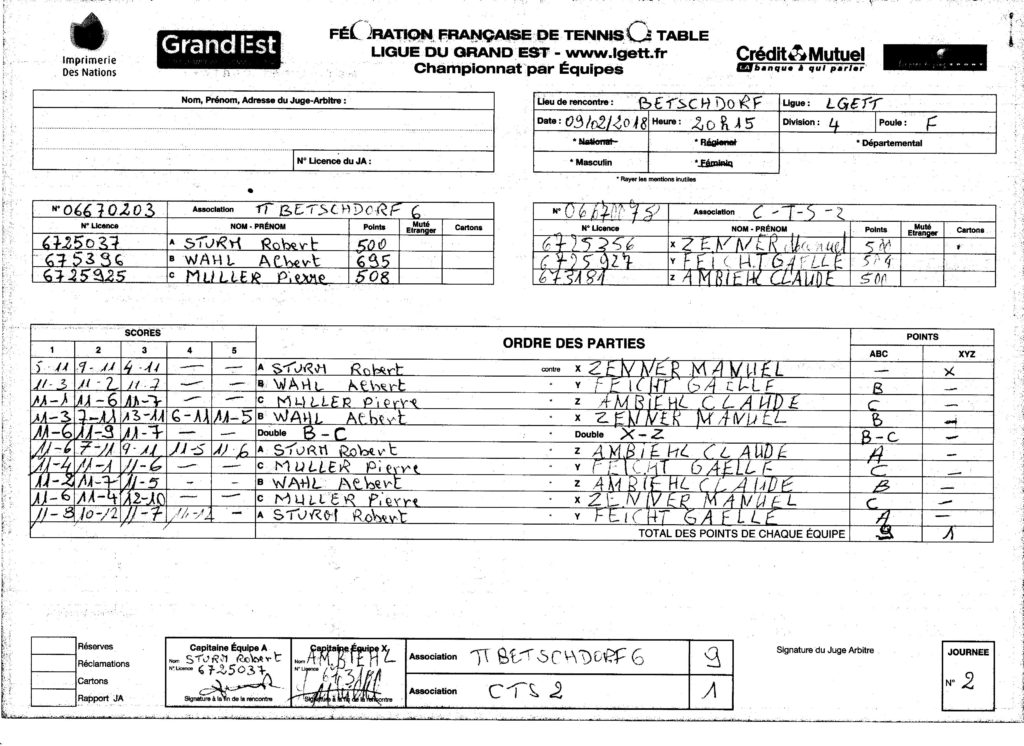 Imprimerie
Des Nations
Grand Est
FÉ RATION FRANÇAISE DE TENNIS E TABLE
LIGUE DU GRAND EST - www.lgett.fr
Championnat par Équipes
Crédit Mutuel
LA banque à qui parler
Nom, Prénom, Adresse du Juge-Arbitre :
N° Licence du JA :
Lieu de rencontre : BETSCHDORF Ligue : LGETT
Date : 09/02/2018 Heure : 20H15 Division : 4 Poule : F
* National * Régional * Départemental
* Masculin * Féminin
* Rayer les mentions inutiles
N° 06670203 Association TT BETSCHDORF 6
N° Licence NOM - PRÉNOM Points Muté Etranger Cartons
6725037 A STURM Robert 500
675396 B WAHL Albert 695
6725925 C MULLER Pierre 508
N° Association C-T-S-2
N° Licence NOM - PRÉNOM Points Muté Etranger Cartons
6725356 X ZENNER Manuel
6725927 Y FEICHT GAELLE 504
673181 Z AMBIEHL CLAUDE 500
SCORES ORDRE DES PARTIES POINTS
1 2 3 4 5 ABC XYZ
5-11 9-11 4-11 — — A STURM Robert contre X ZENNER MANUEL — X
11-3 11-2 11-7 — — B WAHL Albert - Y FEICHT GAELLE B —
11-1 11-6 11-7 — — C MULLER Pierre - Z AMBIEHL CLAUDE C —
11-3 7-11 13-11 6-11 11-5 B WAHL Albert - X ZENNER MANUEL B —
11-6 11-9 11-7 — — Double B-C - Double X-Z B-C —
11-6 7-11 9-11 11-5 11-6 A STURM Robert - Z AMBIEHL CLAUDE A —
11-4 11-1 11-6 — — C MULLER Pierre - Y FEICHT GAELLE C —
11-2 11-7 11-5 - — B WAHL Albert - Z AMBIEHL CLAUDE B —
11-6 11-4 12-10 — — C MULLER Pierre - X ZENNER MANUEL C —
11-8 10-12 11-7 - A STURM Robert - Y FEICHT GAELLE A —
TOTAL DES POINTS DE CHAQUE ÉQUIPE 9 1
Réserves
Réclamations
Cartons
Rapport JA
Capitaine Équipe A
Nom STURM Robert
N° Licence 6725037
Signature à la fin de la rencontre
Capitaine Équipe X
Nom AMBIEHL
N° Licence 673181
Signature à la fin de la rencontre
Association TT BETSCHDORF 6 9
Association CTS 2 1
Signature du Juge Arbitre
JOURNEE
N° 2